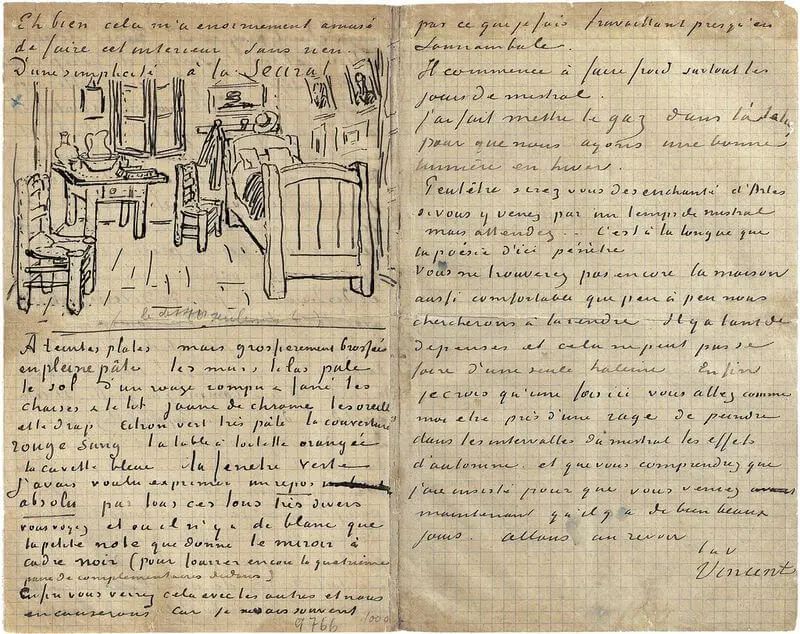 Eh bien cela m'a enormement amusé
de faire cet interieur sans rien.
D'une simplicité à la Seurat
À teintes plates mais grossierement brossées
en pleine pâte les murs lilas pale
le sol d'un rouge rompu & fané les
chaises & le lit jaune de chrome les oreillers
et le drap citron vert très pâle la couverture
rouge sang la table à toilette orangée
la cuvette bleue la fenetre verte
J'avais voulu exprimer un repos
absolu par tous ces tons très divers
vous voyez et où il n'y a de blanc que
la petite note que donne le miroir à
cadre noir (pour fourrer encore la quatrieme
paire de complementaires dedans)
Enfin vous verrez cela avec les autres et nous
en causerons car je ne sais souvent
9766
par ce que je fais travaillant presqu'en
somnambule.
Il commence à faire froid surtout les
jours de mistral.
J'ai fait mettre le gaz dans l'atelier
pour que nous ayons une bonne
lumière en hiver.
Peutêtre serez vous desenchanté d'Arles
si vous y venez par un temps de mistral
mais attendez.. C'est à la longue que
la poésie d'ici pénètre
Vous ne trouverez pas encore la maison
aussi comfortable que peu à peu nous
chercherons à la rendre. Il y a tant de
depenses et cela ne peut pas se
faire d'une seule haleine Enfin
je crois qu'une fois ici vous allez comme
moi etre pris d'une rage de peindre
dans les intervalles du mistral les effets
d'automne. et que vous comprendrez que
j'ai insisté pour que vous veniez
maintenant qu'il y a de bien beaux
jours. allons au revoir
t. à v
Vincent